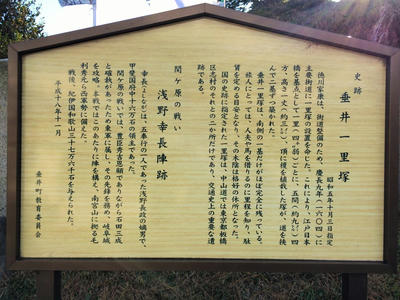 史跡
垂井一里塚
昭和五年十月三日指定
徳川家康は、街道整備のため、慶長九年(一六〇四)に
主要街道に一里塚の設置を命じた。これにより、江戸日本
橋を基点として一里(四㌔弱)ごとに、五間(約九㍍)四
方、高さ一丈(約三㍍)、頂に榎を植載した塚が、道を挟
んで二基ずつ築かれた。
垂井一里塚は、南側の一基だけがほぼ完全に残っている。
旅人にとっては、人夫や馬を借りるのに里程を知り、駄
賃を定める目安となり、その木陰は格好の休所となった。
国の史跡に指定された一里塚は、中山道では東京都板橋
区志村のそれとの二か所だけであり、交通史上の重要な遺
跡である。
関ケ原の戦い
浅野幸長陣跡
幸長(よしなが)は、五奉行の一人であった浅野長政の嫡男で、
甲斐国府中十六万石の領主であった。
関ケ原の戦いでは、豊臣秀吉恩顧でありながら石田三成
と確執があったため東軍に属し、その先鋒を務め、岐阜城
を攻略。本戦ではこのあたりに陣を構え、南宮山に拠る毛
利秀元ら西軍勢に備えた。
戦後、紀伊国和歌山三十七万六千石を与えられた。
平成十八年十一月
垂井町教育委員会